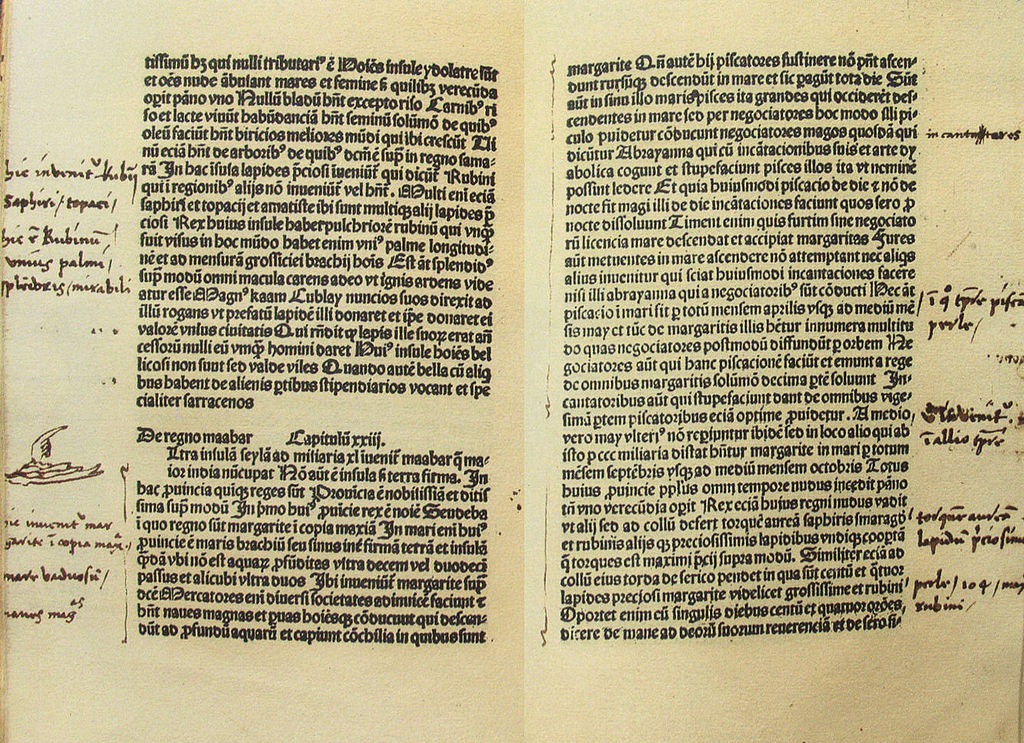 tissimū bʒ qui nulli tributariꝰ ē Hoīes insule ydolatre sūt
et oēs nude ābulant mares et femine ß quilibʒ verecūda
opit pāno vno Nullū bladū hn̄t excepto riso Carnibꝰ ri
so et lacte viuūt habūdanciā hn̄t seminū solūmō de quibꝰ
oleū faciūt hn̄t biricios meliores mūdi qui ibi crescūt Ui
nū eciā hn̄t de arboribꝰ de quibꝰ dcm̄ ē sup̄ in regno sama-
rā In hac īsula lapides p̄ciosi iueniūt qui dicūt Rubini
qui ī regionibꝰ alijs nō inueniūt vel hn̄t. Multi eni eciā
saphiri et topacij et amatiste ibi sunt multiqʒ alij lapides p̄
ciosi Rex huius insule habet pulchriorē rubinū qui vnqʒ
fuit visus in hoc mūdo habet enim vniꝰ palme longitudi-
nē et ad mensurā grossiciei brachij hoīs Est āt splendidꝰ
sup̄ modū omni macula carens adeo vt ignis ardens vide
atur esse Magnꝰ kaam Cublay nuncios suos direxit ad
illū rogans vt prefatū lapidē illi donaret et ip̄e donaret ei
valorē vnius ciuitatis Qui rn̄dit qꝫ lapis ille suoꝝ erat an̄
cessorū nulli eū vmqʒ homini daret Huiꝰ insule hoiēs bel
licosi non sunt sed valde viles Quando autē bella cū aliq̄
bus habent de alienis ꝑtibus stipendiarios vocant et spe
cialiter sarracenos
De regno maabar Capitulū xxiij.
Ultra insulā seylā ad miliaria xl iuenit̄ maabar q̄ ma-
ior india nūcupat Nō aūt ē insula ß terra firma. In
hac ꝓuincia quiqʒ reges sūt Prouīcia ē nobilissia et ditis
sima sup̄ modū In p̄mo huiꝰ ꝓuicie rex ē noīe Seudeba
ī quo regno sūt margarite ī copia maxiā In mari enī huiꝰ
ꝓuincie ē maris brachiū seu sinus int̄ firmā terrā et insulā
q̄dā vbi nō est aquaꝝ ꝓfūditas vltra decem vel duodecī
passus et alicubi vltra duos Ibi inueniūt̄ margarite sup̄
dcē Mercatores enī diuersi societates adinuicē faciunt ⁊
hn̄t naues magnas et ꝑuas hoiēsqʒ cōducunt qui descen-
dūt ad ꝓfundū aquarū et capiunt cōchilia in quibus sunt
hic invenit̄ Rubin
Saphiri / topaci /
hic ē Rubinū
vnius palmi /
splēdoris / mirabili
hic inuenit̄ mar
garite ī copia maxi.
mare vadosū /
naues mag
margarite Qn̄ autē hij piscatores sustinere nō pn̄t ascen-
dunt rursūqʒ descendūt in mare et sic ꝑagūt tota die Sūt
aūt in sinu illo maris pisces ita grandes qui occiderēt des-
cendentes in mare sed per negociatores hoc modo illi pi-
culo ꝓuidetur cōducunt negociatores magos quosdā qui
dicūtur Abrayanna qui cū incātacionibus suis et arte dy
abolica cogunt et stupefaciunt pisces illos ita vt neminē
possint ledere Et quia huiusmodi piscacio de die ⁊ nō de
nocte fit magi illi de die incātaciones faciunt quos sero ꝓ
nocte dissoluunt Timent enim quis furtim sine negociato
rū licencia mare descendat et accipiat margaritas Fures
aūt metuentes in mare ascendere nō attemptant nec aliqs
alius inuenitur qui sciat huiusmodi incantaciones facere
nisi illi abrayanna qui a negociatoribꝰ sūt cōducti Hec āt
piscacio ī mari fit ꝑ totū mensem aprilis vsqʒ ad mediū mē
sis may et tūc de margaritis illis hētur innumera multitu
do quas negociatores postmodū diffundūt ꝑ orbem Ne
gociatores aūt qui hanc piscacionē faciūt et emunt a rege
de omnibus margaritis solūmō decima ꝑtē soluunt In-
cantatoribus aūt qui stupefaciunt dant de omnibus vige-
simā ꝑtem piscatoribus eciā optime ꝓuidetur. A medio
vero may vlteriꝰ nō reꝑiuntur ibidē sed in loco alio qui ab
isto ꝑ ccc miliaria distat hn̄tur margarite in mari ꝑ totum
mēsem septēbris vsqʒ ad mediū mensem octobris Totus
huius ꝓuincie pplꝰus omni tempore nudus incedit pāno
tn̄ vno verecūdia opit Rex eciā huius regni nudus vadit
vt alij sed ad collū defert torquē aureā saphiris smaragdꝭ
et rubinis alijsqʒ preciosissimis lapidibus vndiqʒ coopertā
q̄ torques est maximi p̄cij supra modū. Similiter eciā ad
collū eius torda de serico pendet in qua sūt centū et q̄tuor
lapides preciosi margarite videlicet grossissime et rubini
Oportet enim eū singulis diebus centū et quatuor orōes,
dicere de mane ad deorū suorum reuerenciā et de sero si-
incantatores
ī q̊ tpr̄e piscā
perle /
ī allio tpr̄e
torquē aureā
lapidū p̄ciosimi
perle / 104 / may
rubini /